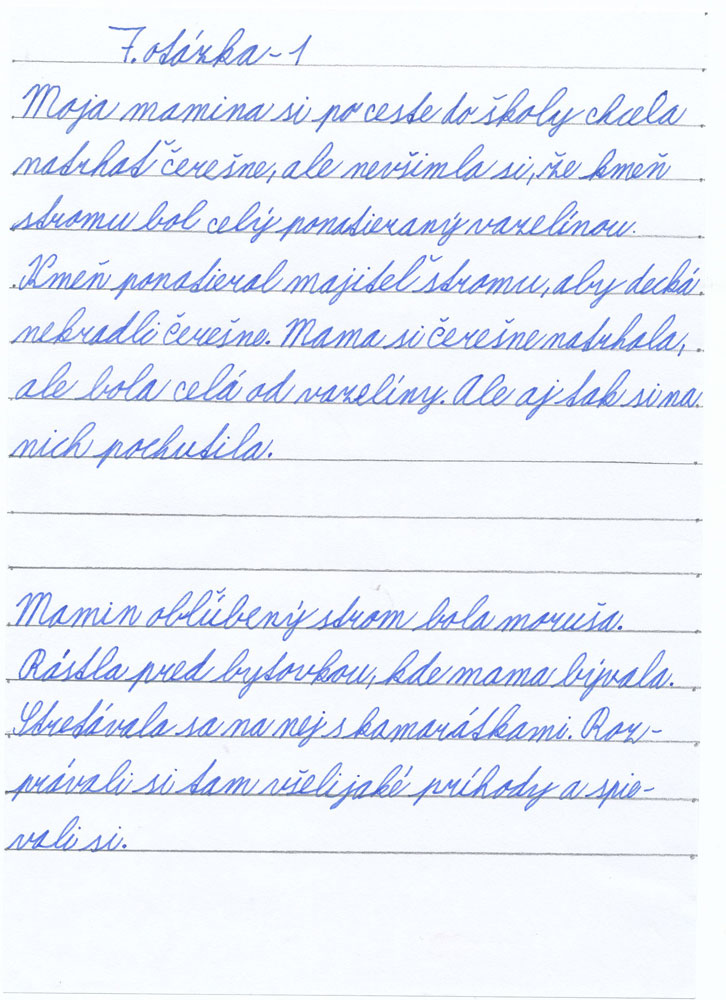 7. otázka - 1
Moja mamina si po ceste do školy chcela
natrhať čerešne, ale nevšimla si, že kmeň
stromu bol celý ponatieraný vazelínou.
Kmeň ponatieral majiteľ stromu, aby decká
nekradli čerešne. Mama si čerešne natrhala,
ale bola celá od vazelíny. Ale aj tak si na
nich pochutila.
Mamin obľúbený strom bola moruša.
Rástla pred bytovkou, kde mama bývala.
Stretávala sa na nej s kamarátkami. Roz-
právali si tam všelijaké príhody a spie-
vali si.